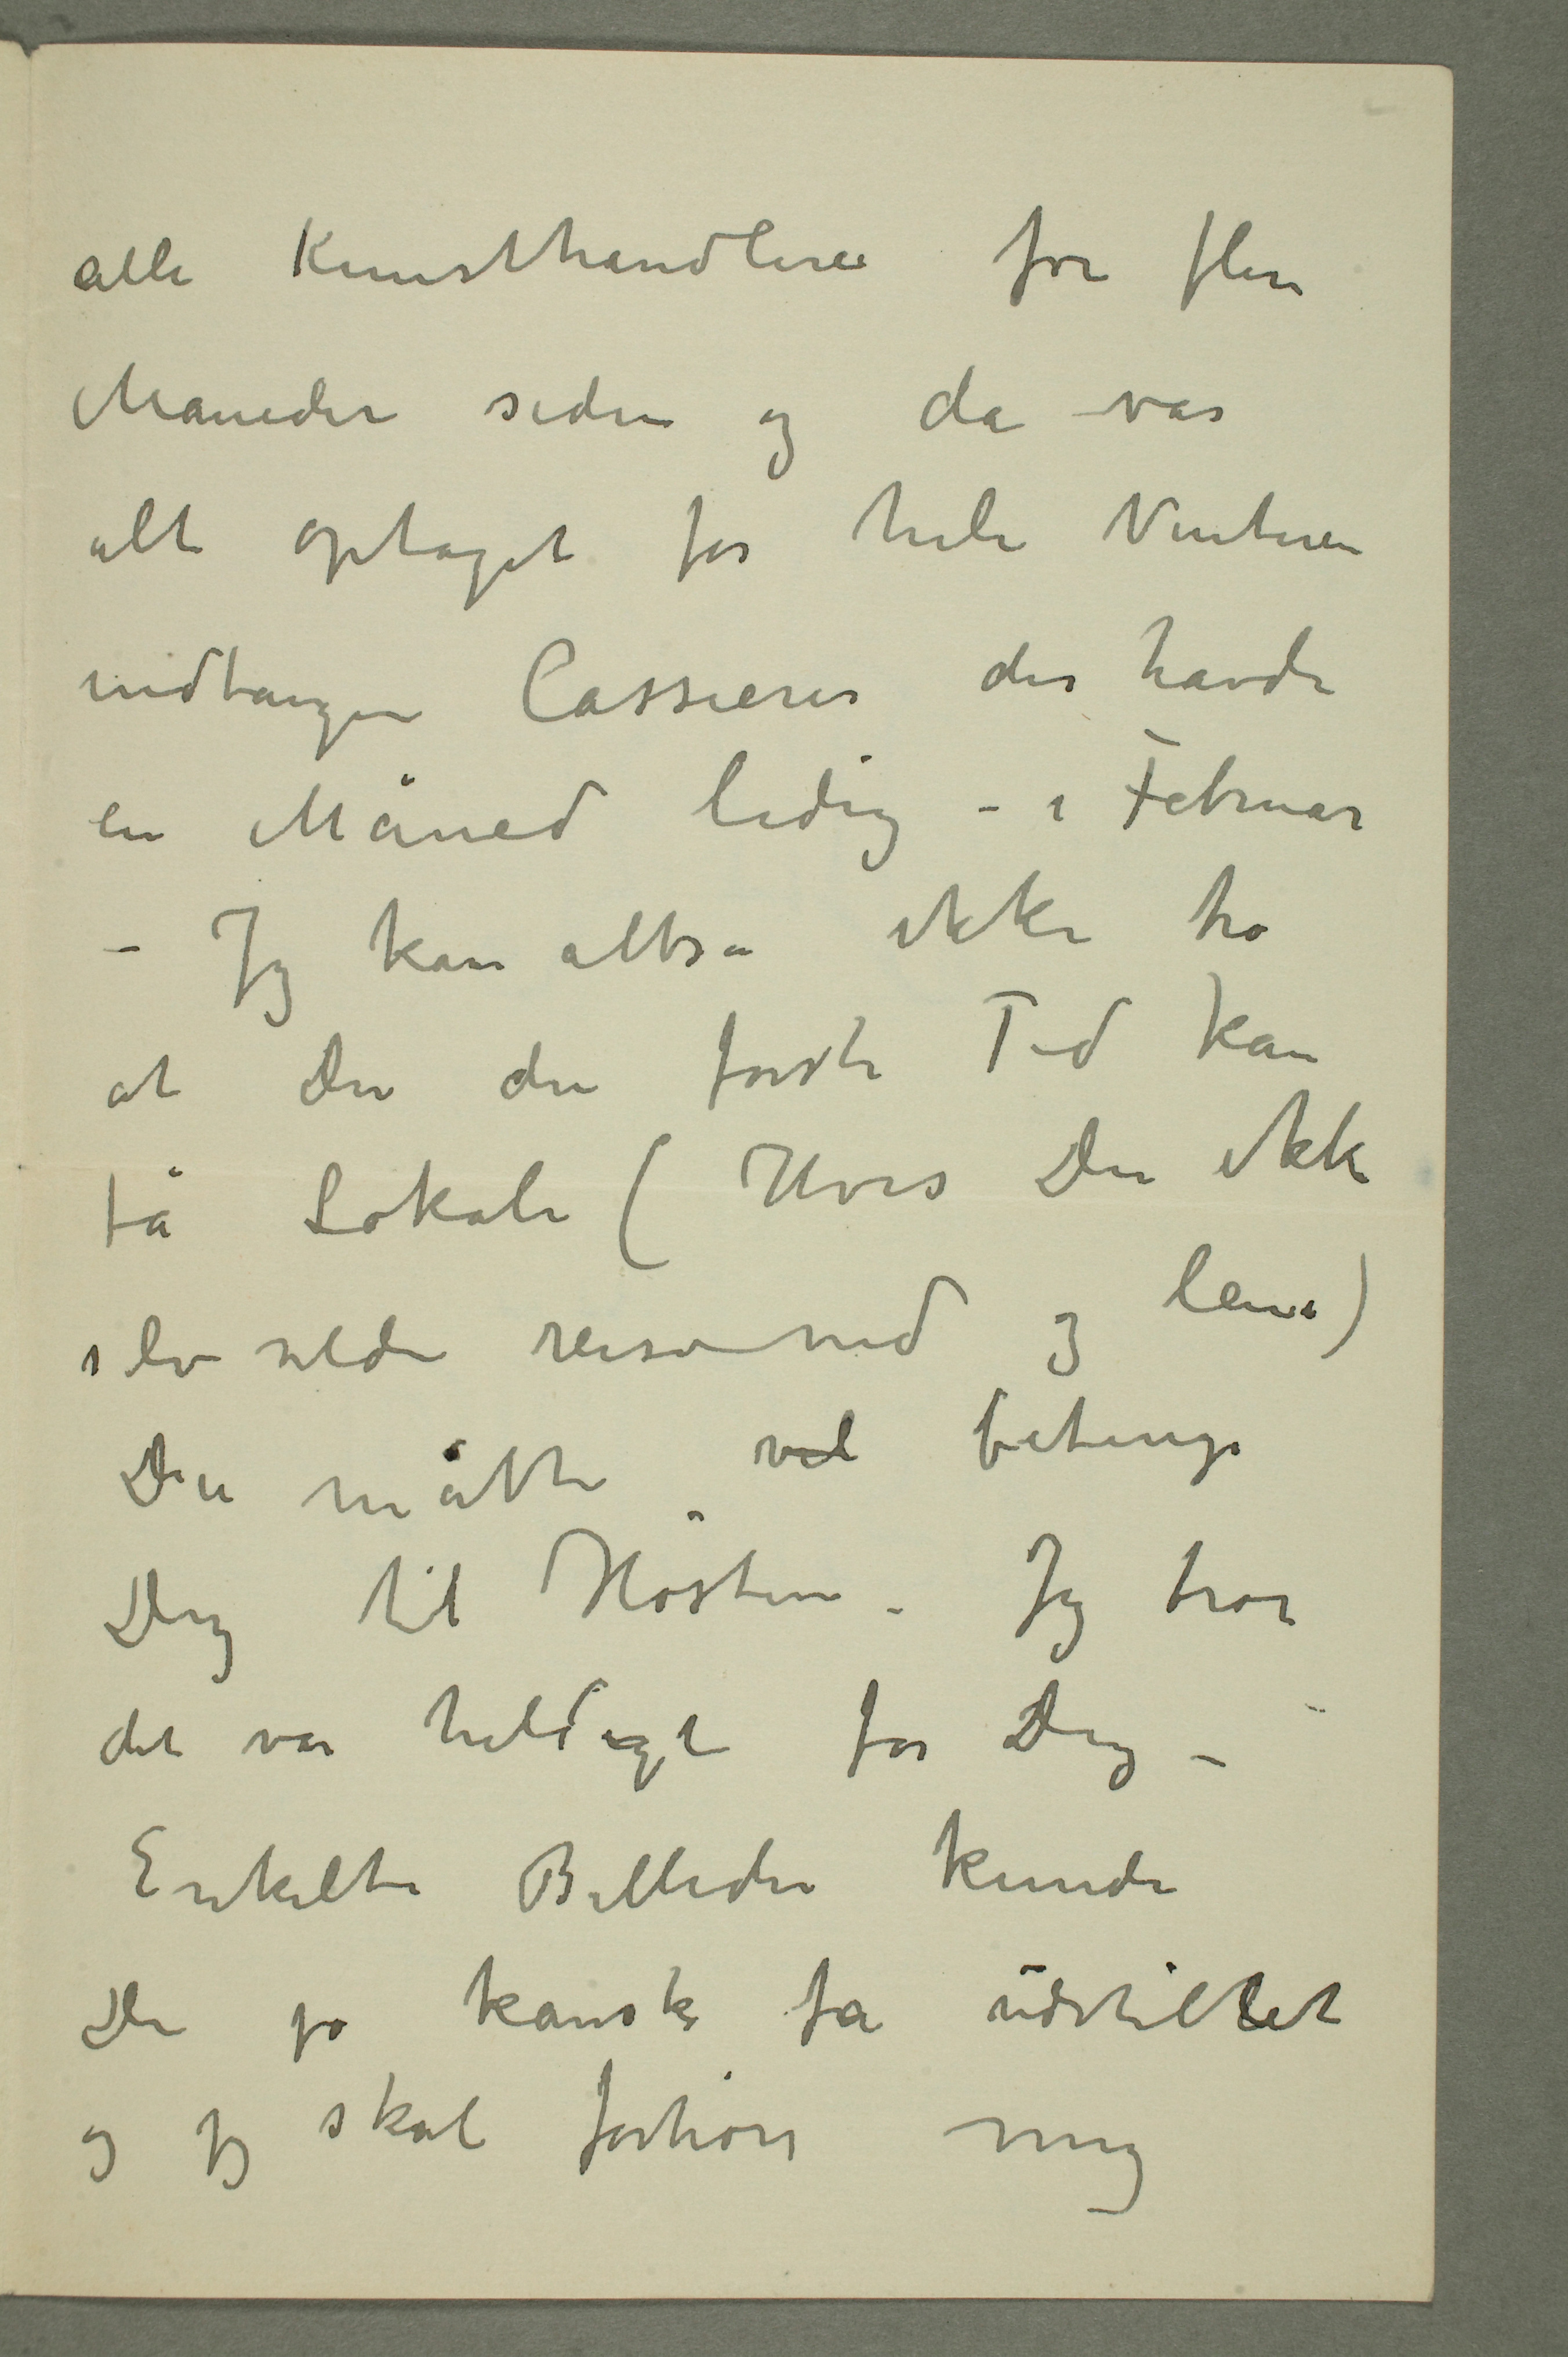 alle Kunsthandlere for flere
Måneder siden og da var
alt optaget for hele Vinteren
undtagen Cassierer der havde
en Måned ledig – i Februar
– Jeg kan altså ikke tro
at Du den første Tid kan
få Lokale (Hvis Du ikke
selv vilde reise ned og leie)
Du måtte vel betinge
Dig til Høsten – Jeg tror
det var heldigt for Dig –
Enkelte Billeder kunde
Du jo kanske få udstillet
og jeg skal forhøre mig